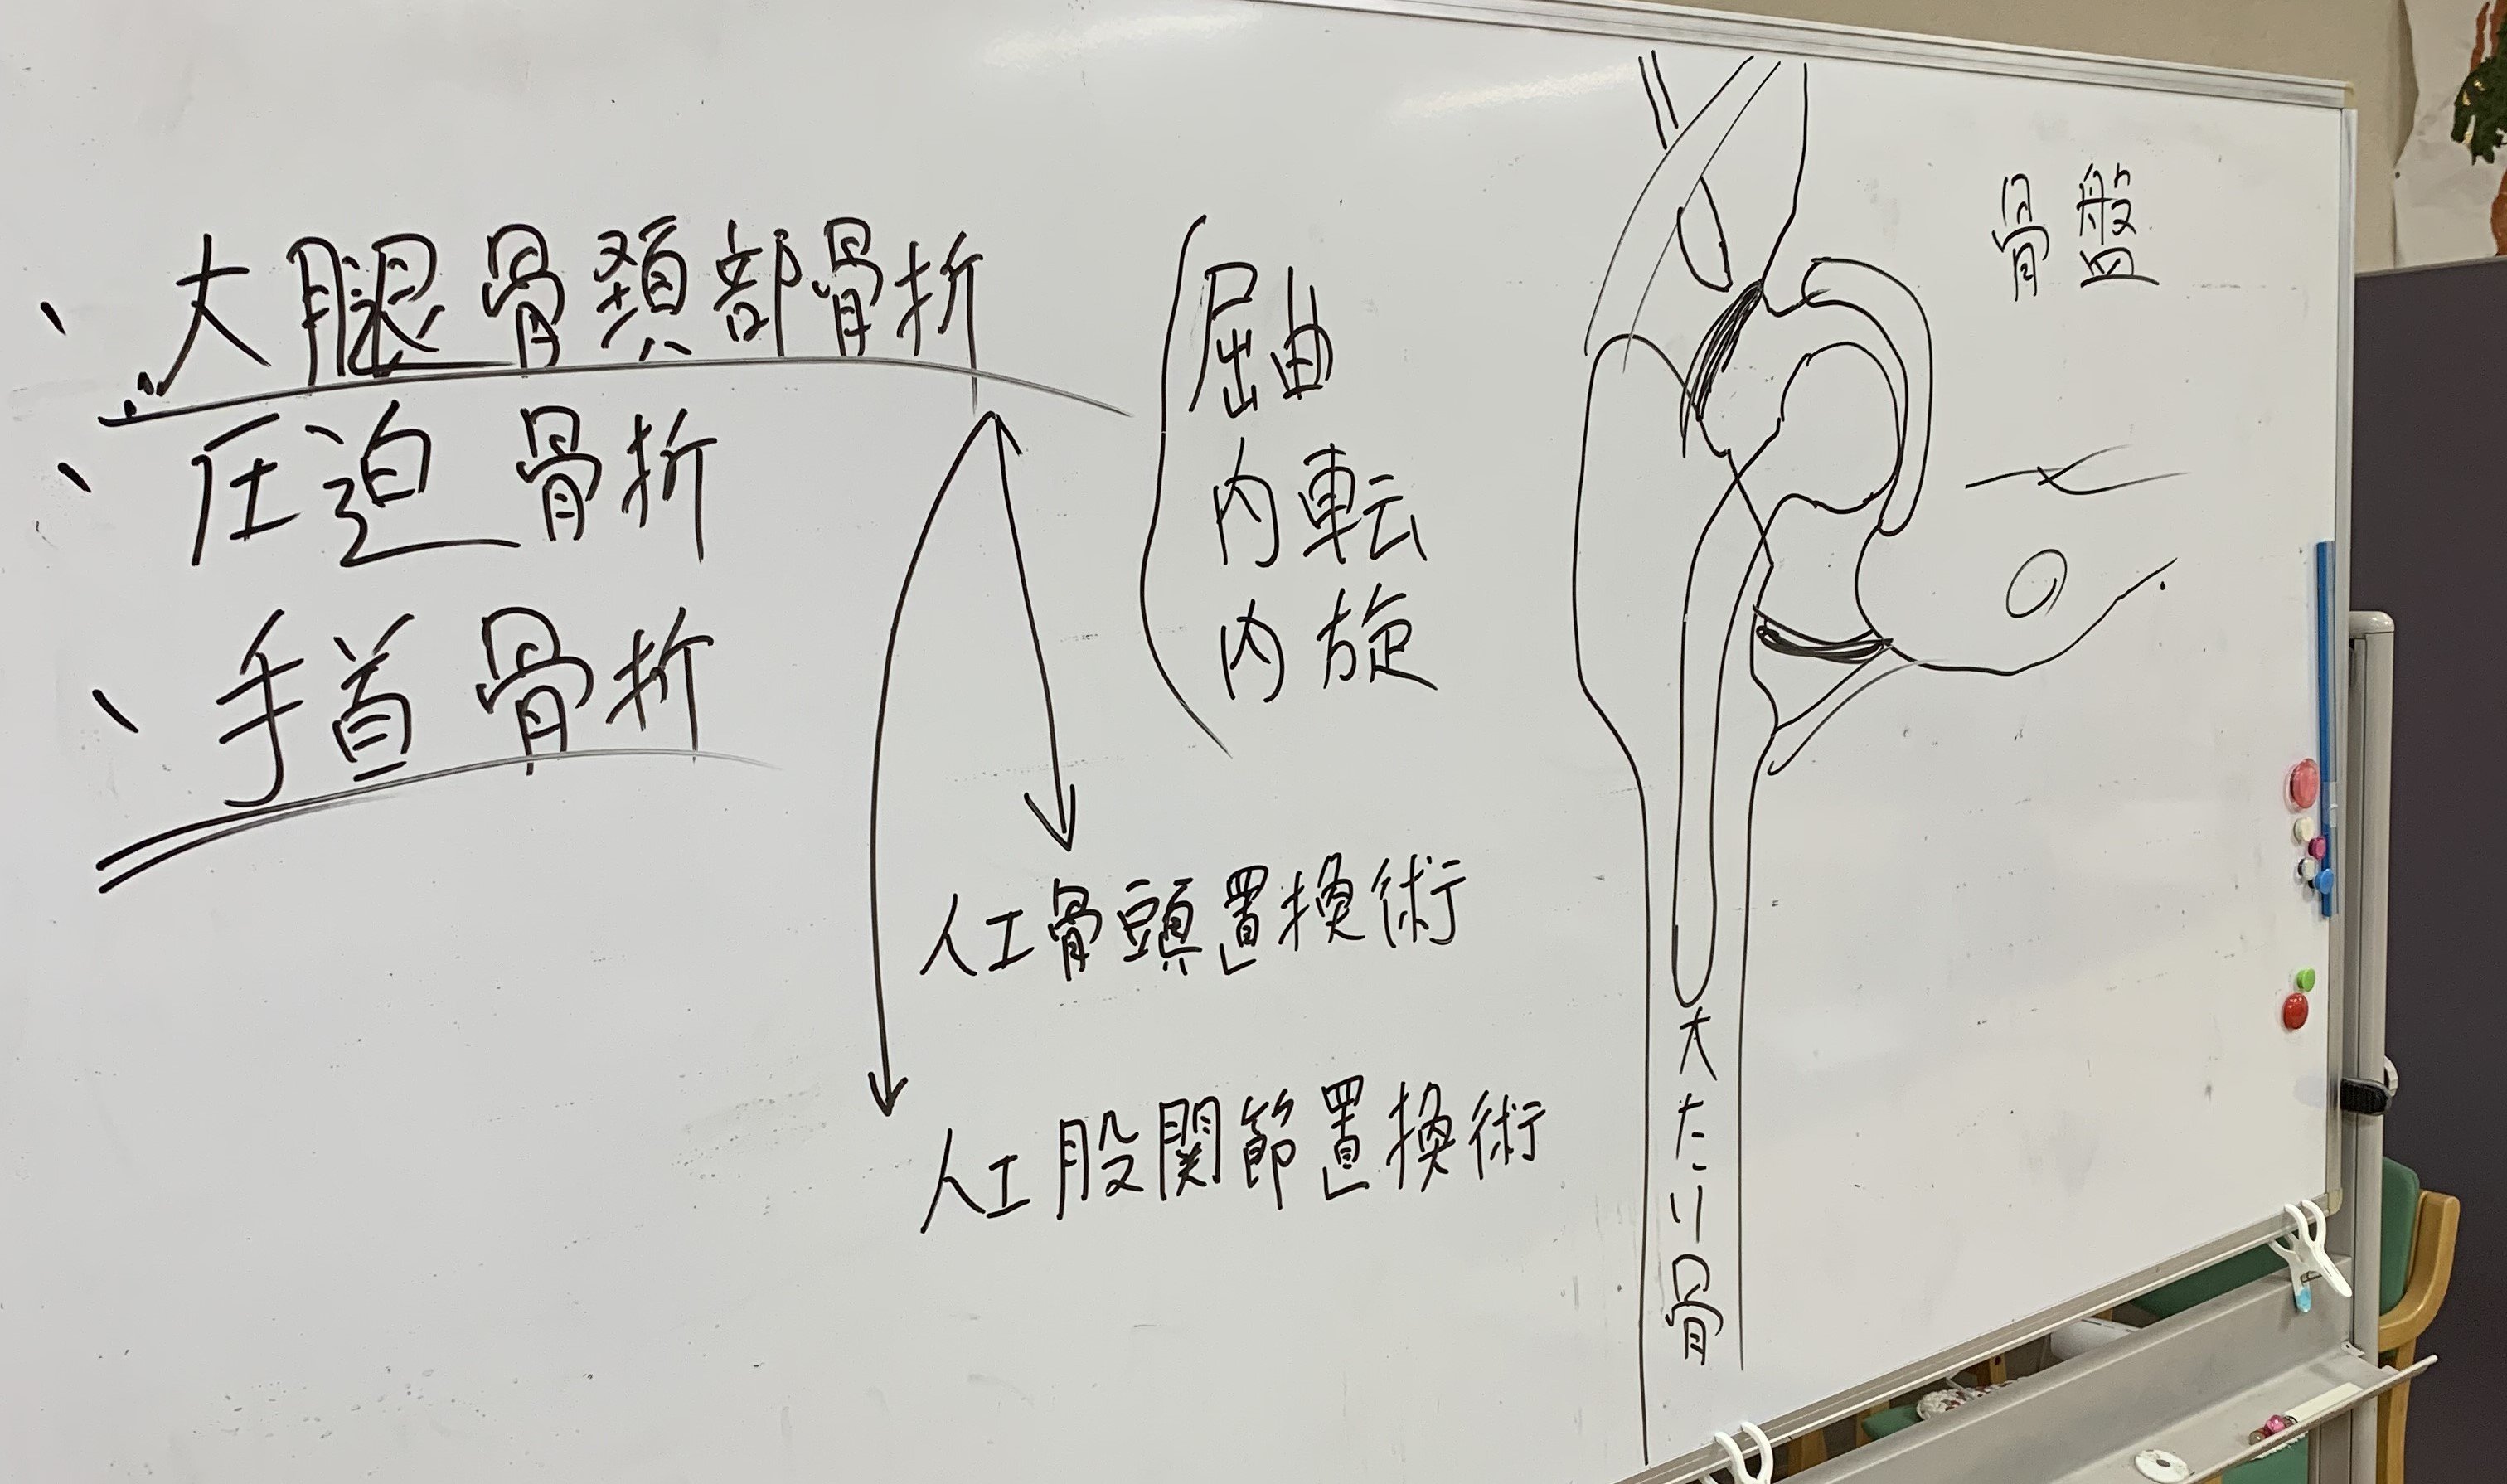 、大腿骨頚部骨折
、圧迫骨折
、手首骨折
屈曲
内転
内旋
人工骨頭置換術
人工股関節置換術
骨盤
大たい骨